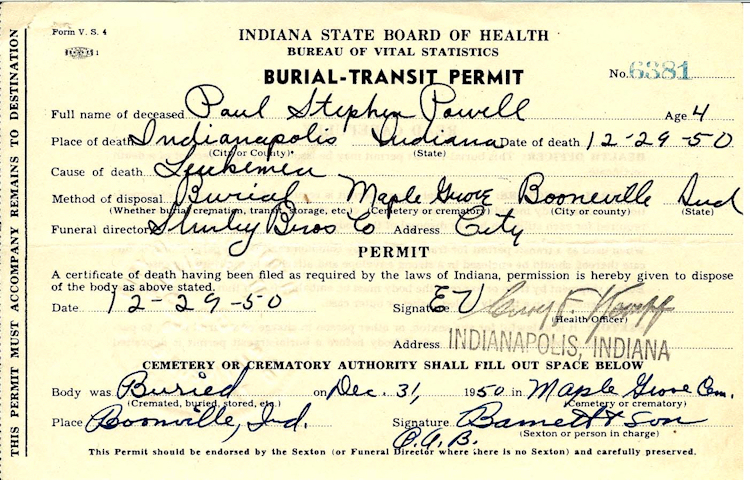 Form V. S. 4
INDIANA STATE BOARD OF HEALTH
BUREAU OF VITAL STATISTICS
BURIAL-TRANSIT PERMIT
No. 6381
Full name of deceased Paul Stephen Powell Age 4
Place of death Indianapolis Indiana Date of death 12-29-50
(City or County) (State)
Cause of death Leukemia
Method of disposal Burial Maple Grove Booneville Ind
(Whether burial, cremation, transit, storage, etc.) (Cemetery or crematory) (City or county) (State)
Funeral director Shirley Bros Co Address City
PERMIT
A certificate of death having been filed as required by the laws of Indiana, permission is hereby given to dispose
of the body as above stated.
Date 12-29-50 Signature EV
(Health Officer)
Address INDIANAPOLIS, INDIANA
CEMETERY OR CREMATORY AUTHORITY SHALL FILL OUT SPACE BELOW
Body was Buried on Dec. 31, 1950 in Maple Grove Cem.
(Cremated, buried, stored, etc.) (Cemetery or crematory)
Place Boonville, Ind. Signature Barnett & Son
C.A.B. (Sexton or person in charge)
This Permit should be endorsed by the Sexton (or Funeral Director where there is no Sexton) and carefully preserved.
THIS PERMIT MUST ACCOMPANY REMAINS TO DESTINATION